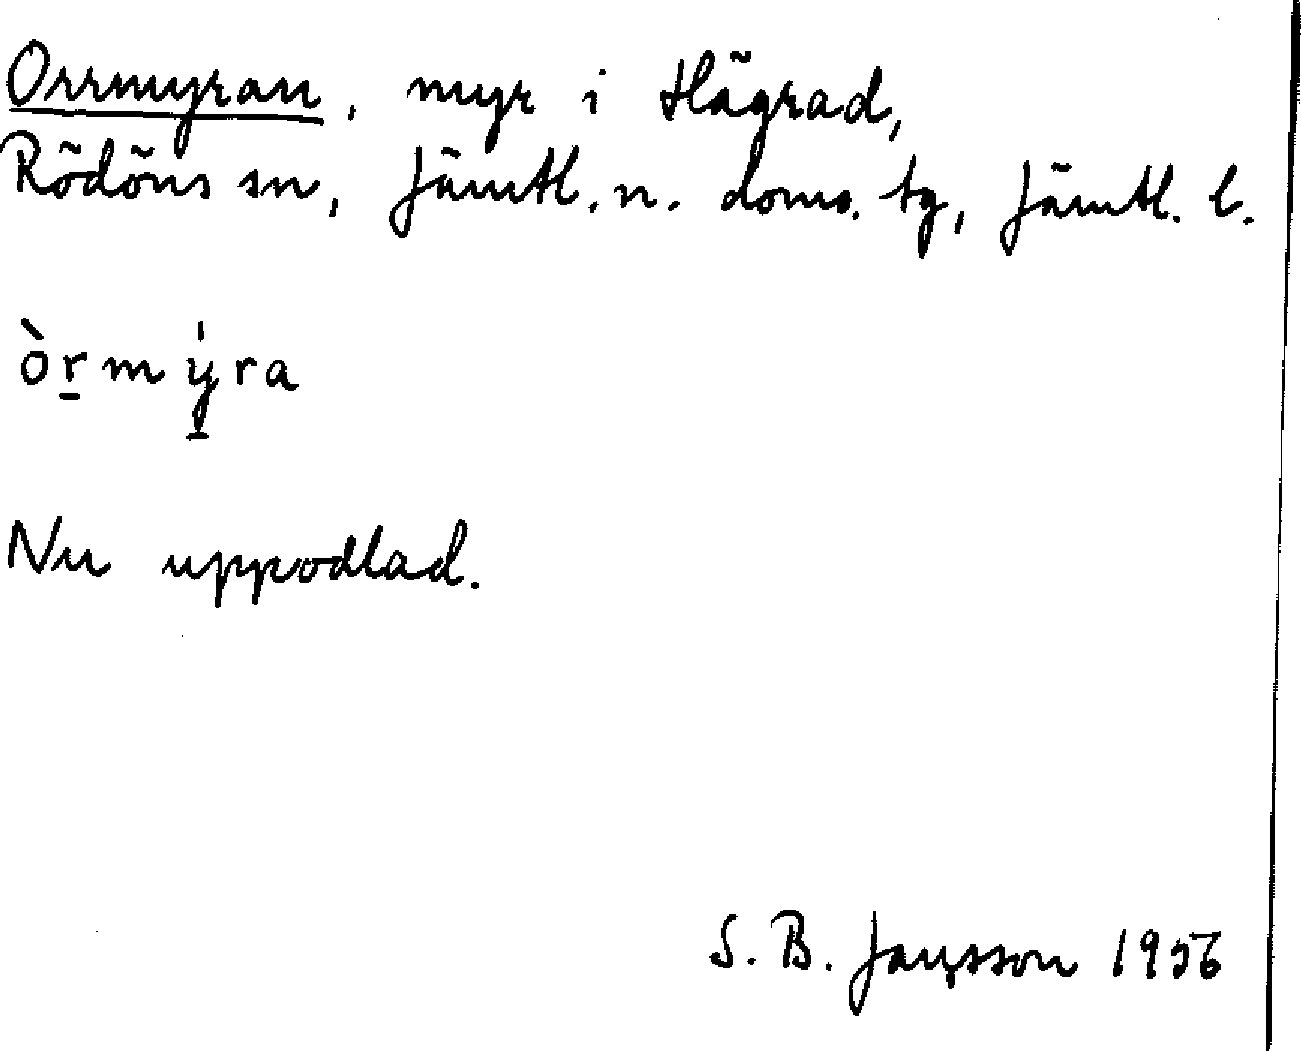 Orrmyran, myr i Hägrad,
Rödöns sn, Jämtl. n. doms. tg, Jämtl. l.
òr̲mý̲ra
Nu uppodlad.
S. B. Jansson 1956